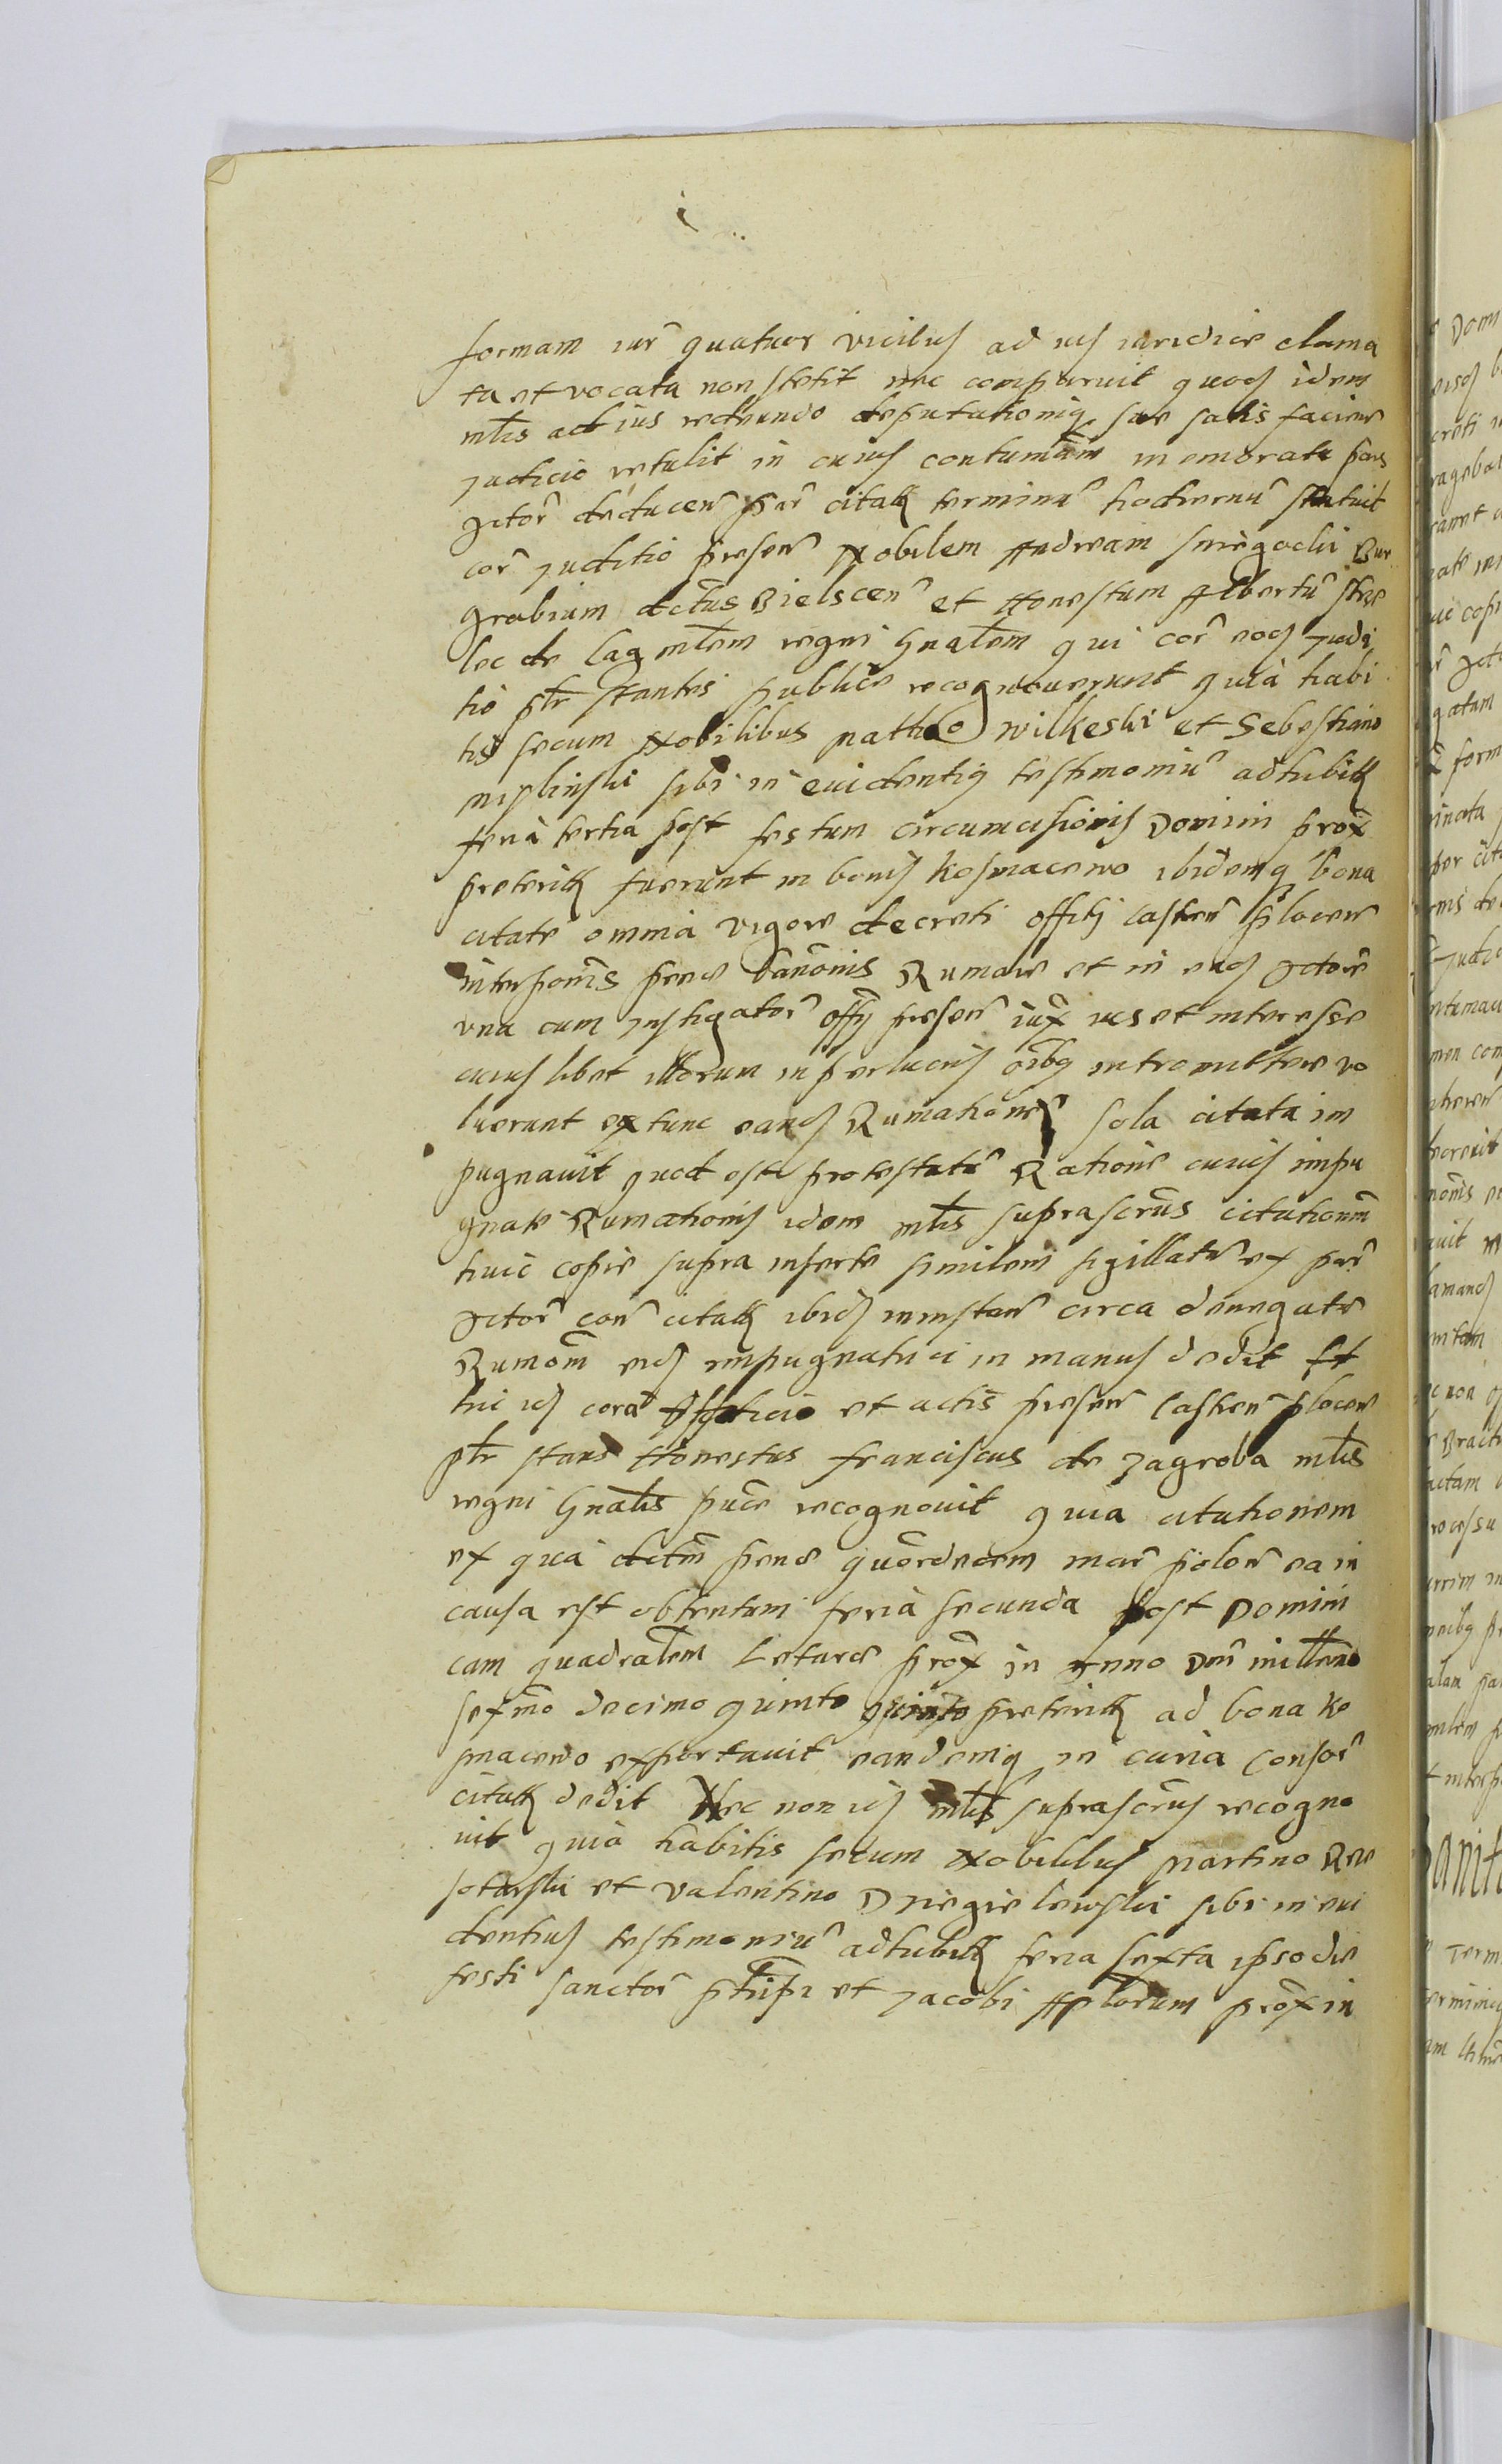 formam iur̃ quatuor vicibus ad ius iuridice clama
ta et vocata non stetit nec comparuit quod idem
mlis ad ius reddeundo deputationiq sae satis faciens
Judicio retulit in cuius contumam̃ memorata pars
Actor̃ deducen̄ par̃ citatae terminũ hodiernũ statuit
cor̃ Juditio presen̄ Nobilem Andream Smiegocki Bur
grabium Bielscen̄ et Honestum Albertũ Strze
lec de mlem regni gnalem qui cor̃ eod Judi
tio pltr stantes publice recognouerunt quia habi
tis secum Nobilibus Mattheo Wilkeski et Sebestiano
Myslinski sibi in euidentiq testimoniũ adhibitis
feria tertia post festum circumcisionis Domini prox̃
preteritae fuerunt in bonis Kosmaczewo ibidemq bona
citate omnia vigore decreti offitij castren̄ plocen̄
interpositis pene bannonis Rumare et in ead Actore
vna cum Instigator̃ offij presen̄ iux̃ ius et interesse
cuius libet illorum in perlucris oibq intromittere vo
luerunt extunc eand Rumationem sola citata im
pugnauit quod est protestatũ Ratione cuius impu
gnate Rumationis idem mlis suprascrus citationem
huic copie supra inserte similem sigillatã ex par̃
Actor̃ con̄ citatae ibid ministen̄ circa denegatã
Rumom̃ eid impugnatrici in manus dedit Et
hic id corã Officio et actis presen̄ Castren̄ plocen̄
pltr stans Honestus Franciscus de Zagroba mlis
regni gnalis puce recognouit quia citationem
ex qua dctm̃ pene quordecem mar̃ polon̄ ea in
causa est obtentum feria secunda post Domini
cam quadralem Letare prox̃ in Anno Dni millemo
sexmo decimo quinto quinto preteritae ad bona Ko
smaczewo exportauit eandemq in curia consor̃
citatae dedit Nec non id mlis suprascrus recogno
uit quia habitis secum Nobilibus Martino Rze
szotarski et Valentino Dziegielewski sibi in eui
dentius testimoniũ adhibitis feria sexta ipso die
festi sanctor̃ Phlipi et Jacobi Aplorum prox̃ in